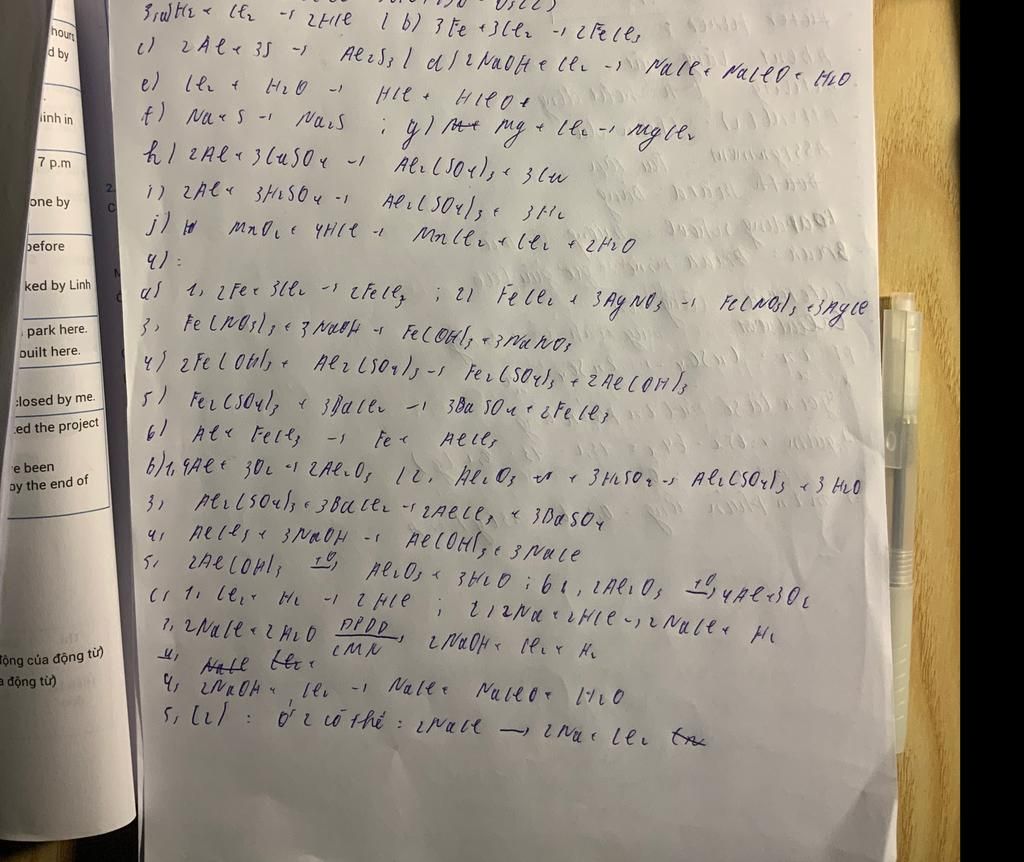 hours
d by
inh in
7 p.m
one by
before
ked by Linh
park here.
built here.
closed by me.
ed the project
e been
by the end of
ộng của động từ)
a động từ)
2.
C
3, a) H2 + Cl2 → 2HCl ( b) 3Fe + 3Cl2 → 2FeCl3
c) 2Al + 3S → Al2S3 | d) 2NaOH + Cl2 → NaCl + NaClO + H2O
e) Cl2 + H2O → HCl + HClO +
f) Na + S → Na2S ; g) Mg + Cl2 → MgCl2
h) 2Al + 3CuSO4 → Al2(SO4)3 + 3Cu
i) 2Al + 3H2SO4 → Al2(SO4)3 + 3H2
j) MnO2 + 4HCl → MnCl2 + Cl2 + 2H2O
4) :
a) 1, 2Fe + 3Cl2 → 2FeCl3 ; 2) FeCl2 + 3AgNO3 → Fe(NO3)3 + 3AgCl
3, Fe(NO3)3 + 3NaOH → Fe(OH)3 + 3NaNO3
4) 2Fe(OH)3 + Al2(SO4)3 → Fe2(SO4)3 + 2Al(OH)3
5) Fe2(SO4)3 + 3BaCl2 → 3BaSO4 + 2FeCl3
6) Al + FeCl3 → Fe + AlCl3
b) 1, 4Al + 3O2 → 2Al2O3 | 2, Al2O3 + 3H2SO4 → Al2(SO4)3 + 3H2O
3, Al2(SO4)3 + 3BaCl2 → 2AlCl3 + 3BaSO4
4, AlCl3 + 3NaOH → Al(OH)3 + 3NaCl
5, 2Al(OH)3 t° → Al2O3 + 3H2O ; 6, 2Al2O3 t° → 4Al + 3O2
c, 1, Cl2 + H2 → 2HCl ; 2, 2Na + 2HCl → 2NaCl + H2
3, 2NaCl + 2H2O ĐPDD CMN → 2NaOH + Cl2 + H2
4, NaCl Cl2 +
4, 2NaOH + Cl2 → NaCl + NaClO + H2O
5, [2] : ở 2 có thể : 2NaCl → 2Na + Cl2